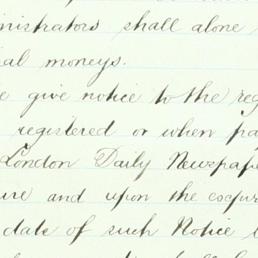 inistrators shall alone
ial moneys.
e give notice to the reg
registered or when pa
London Daily Newspape
ure and upon the expir
date of such Notice